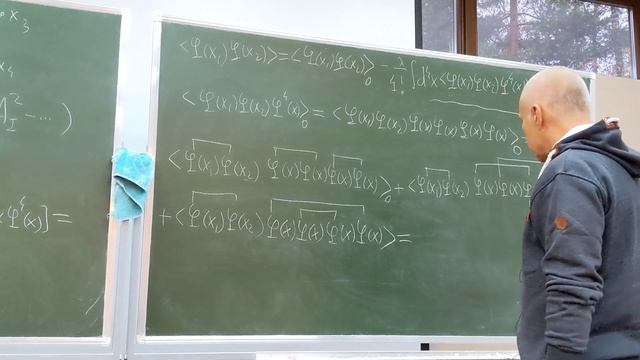 x₃
x₄
A_I² - ... )
φ⁴(x)] =
<φ(x₁)φ(x₂)> = <φ(x₁)φ(x₂)>₀ - λ/4! ∫d⁴x <φ(x₁)φ(x₂)φ⁴(x)
<φ(x₁)φ(x₂)φ⁴(x)>₀ = <φ(x₁)φ(x₂)φ(x)φ(x)φ(x)φ(x)>₀
<φ(x₁)φ(x₂) φ(x)φ(x)φ(x)φ(x)>₀ + <φ(x₁)φ(x₂) φ(x)φ(x)φ
+ <φ(x₁)φ(x₂) φ(x)φ(x)φ(x)φ(x)> =